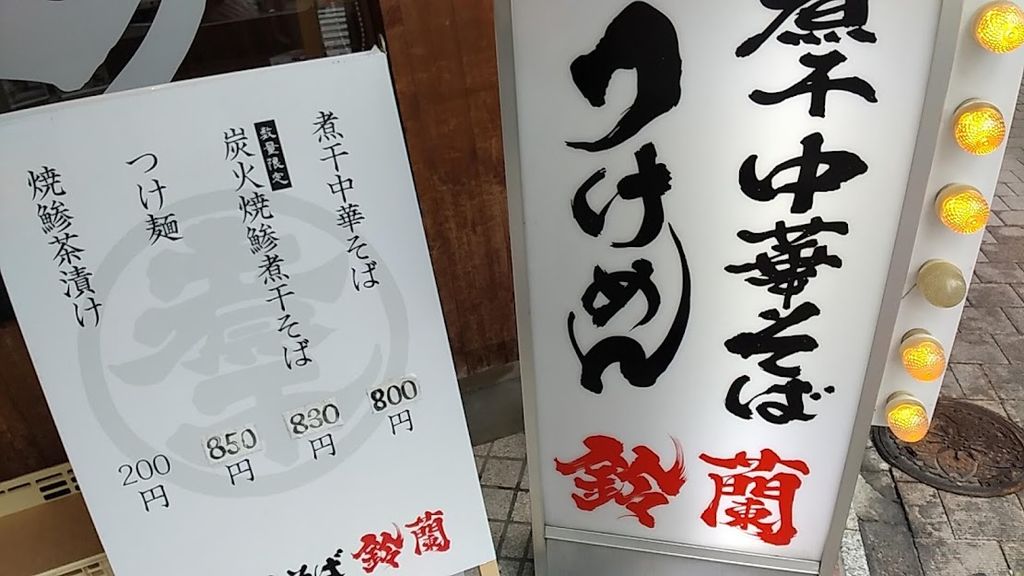 煮干中華そば
800
円
数量限定
炭火焼鯵煮干そば
830
円
つけ麺
850
円
焼鯵茶漬け
200
円
煮干
そば
鈴蘭
煮干中華そば
つけめん
鈴蘭